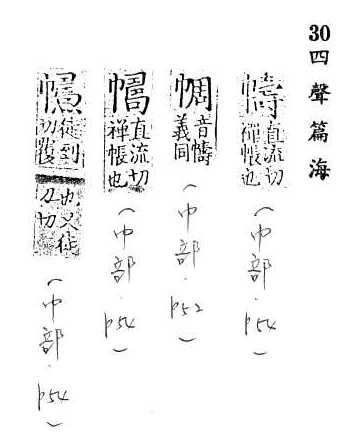 30四聲篇海
幬
直流切
禪帳也
(巾部.p54)
音幬
義同
(巾部.p52)
直流切
禪帳也
(巾部.p54)
徒到
切覆
也又徒
刀切
(巾部.p54)